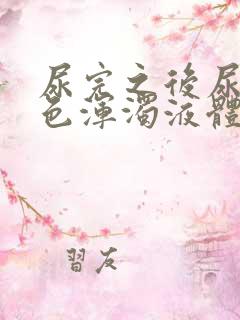 尿完之後尿
色渾濁液體
習友